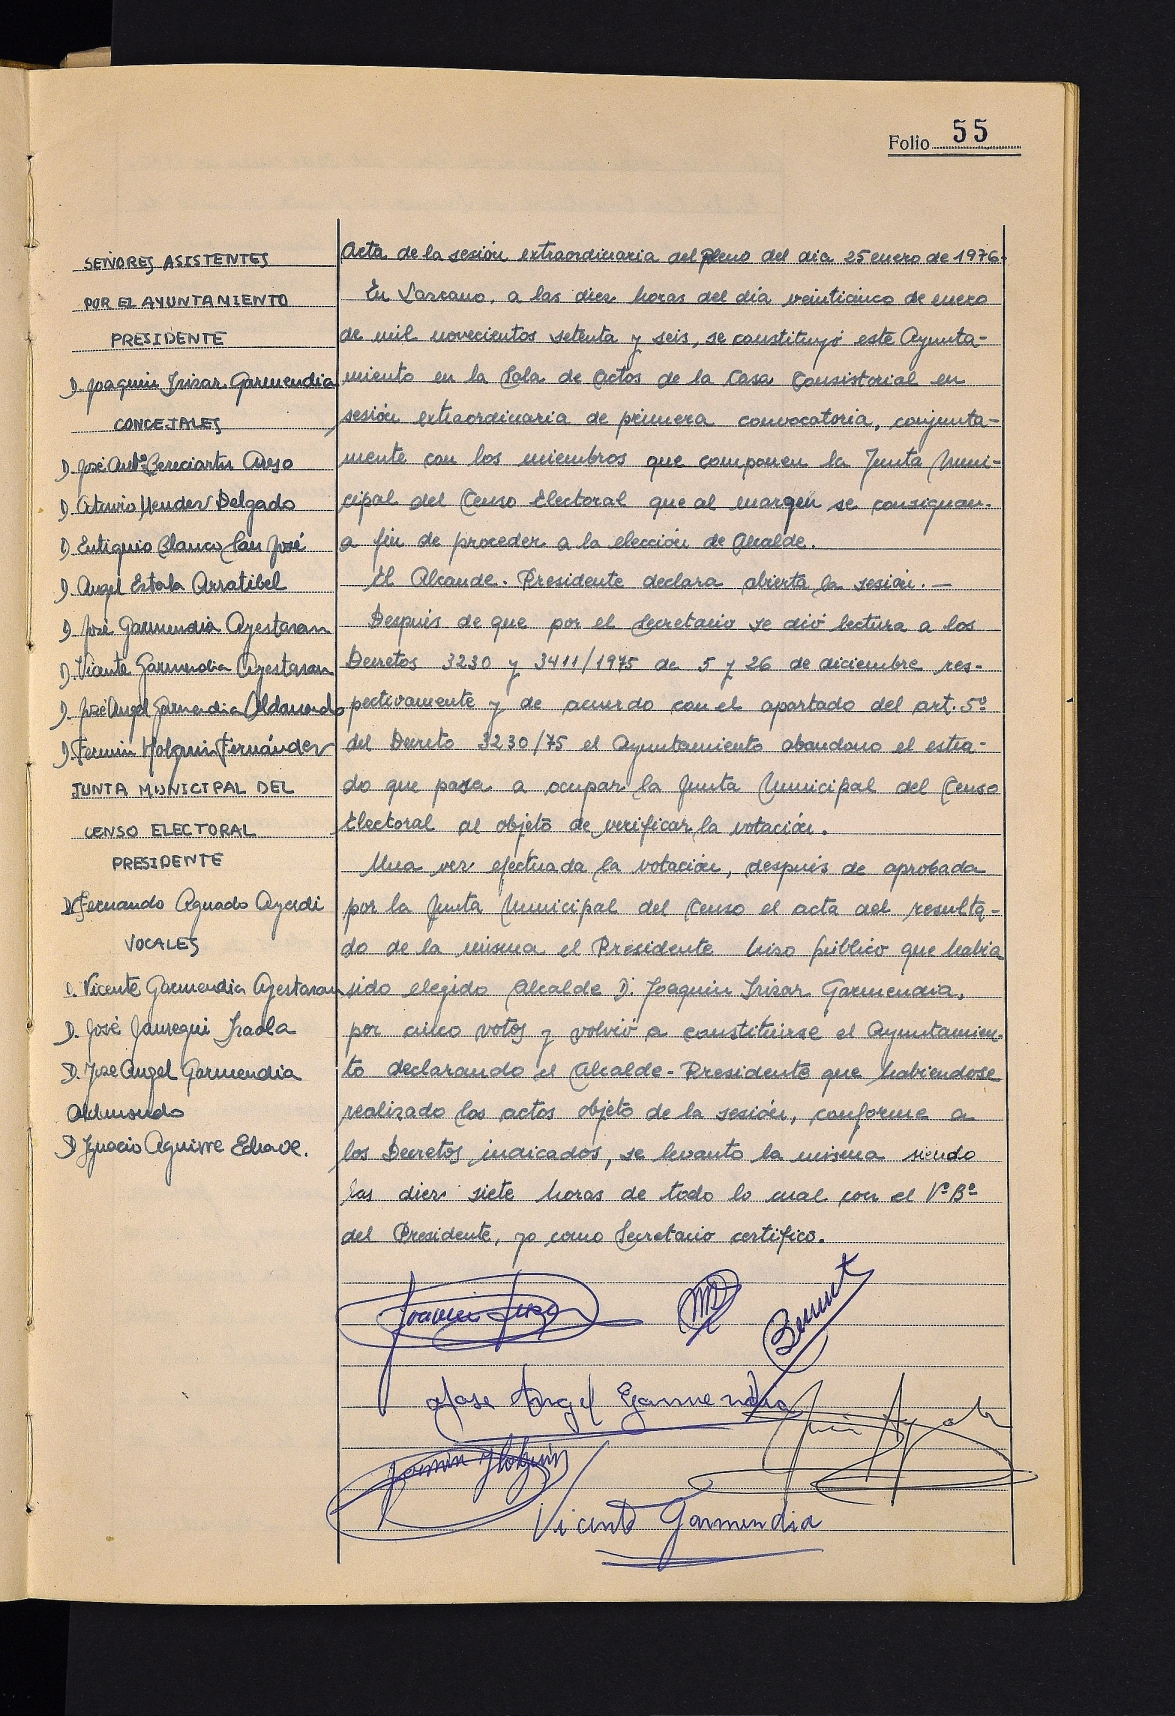 Folio 55
SEÑORES ASISTENTES
POR EL AYUNTAMIENTO
PRESIDENTE
D. Joaquin Irizar Garmendia
CONCEJALES
D. José Antº Bereciartu Areso
D. Arturio Mendes Delgado
D. Eutiquio Blanco San José
D. Angel Estala Arratibel
D. José Garmendia Ayestaran
D. Vicente Garmendia Ayestaran
D. José Angel Garmendia Aldanondo
D. Fermin Holguin Fernández
JUNTA MUNICIPAL DEL
CENSO ELECTORAL
PRESIDENTE
D. Fernando Aguado Ayerdi
VOCALES
D. Vicente Garmendia Ayestaran
D. José Jauregui Iraola
D. Jose Angel Garmendia
Aldanondo
D. Ignacio Aguirre Echave.
Acta de la sesión extraordinaria del pleno del dia 25 enero de 1976.
En Lazcano, a las diez horas del día veinticinco de enero
de mil novecientos setenta y seis, se constituyó este Ayunta-
miento en la Sala de Actos de la Casa Consistorial en
sesión extraordinaria de primera convocatoria, conjunta-
mente con los miembros que componen la Junta Muni-
cipal del Censo Electoral que al margen se consignan.
a fin de proceder a la elección de Alcalde.
El Alcande-Presidente declara abierta la sesión. —
Después de que por el Secretario se dió lectura a los
Decretos 3230 y 3411/1975 de 5 y 26 de diciembre res-
pectivamente y de acuerdo con el apartado del art. 5º
del Decreto 3230/75 el Ayuntamiento abandono el estra-
do que pasa a ocupar la Junta Municipal del Censo
Electoral al objeto de verificar la votación.
Una vez efectuada la votación, después de aprobada
por la Junta Municipal del Censo el acta del resulta-
do de la misma el Presidente hizo público que habia
sido elegido Alcalde D. Joaquin Irizar Garmendia,
por cinco votos y volvió a constituirse el Ayuntamien-
to declarando el Alcalde-Presidente que habiendose
realizado los actos objeto de la sesión, conforme a
los Decretos indicados, se levanto la misma siendo
las diez siete horas de todo lo cual con el VºBº
del Presidente, yo como Secretario certifico.
Jose Angel Garmendia
Fermin Holguin
Vicente Garmendia